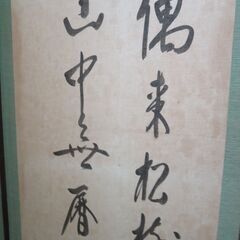 偶来松樹
山中無暦